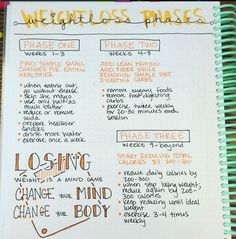 WEIGHTLOSS PHASES
PHASE ONE
WEEKS 1-3
FIND SIMPLE SMALL
CHANGES FOR EATING
HEALTHIER
• when eating out,
go without bread
• skip the mayo
• use only half as
much butter
• reduce or remove
soda
• prepare healthier
snacks
• drink more water
• exercise once a week
PHASE TWO
WEEKS 4-8
ADD LEAN PROTEIN
AND FIBER WHILE
REMOVING SIMPLE FAST
DIGESTING CARBS
• remove sugary foods
• remove fast-digesting
carbs
• exercise twice weekly
for 20-30 minutes each
session
PHASE THREE
WEEKS 9-beyond
START REDUCING TOTAL
CALORIES BY 200-300
• reduce daily calories by
200-300
• when stop losing weight,
reduce again by 200-300
calories
• keep reducing until ideal
weight
• exercise 3-4 times
weekly
LOSING
WEIGHT IS A MIND GAME
CHANGE YOUR MIND
CHANGE YOUR BODY